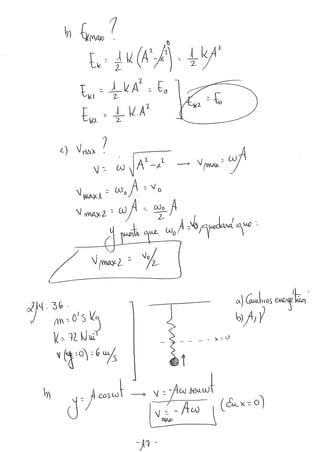 b) Ekmax ?
Ek = 1/2 K (A² - x²) = 1/2 KA²
0
Ek1 = 1/2 KA² = E₀
Ek2 = 1/2 K.A²
Ek2 = E₀
c) Vmax ?
V = ω √A² - x² → Vmax = ωA
Vmax1 = ω₀ A = V₀
Vmax2 = ωA = ω₀/2 A
y puesto que ω₀ A = V₀, quedará que:
Vmax2 = V₀/2
214. 36.
m = 0'5 Kg
K = 72 N m⁻¹
v (y=0) = 6 m/s
x = 0
a) Cambios energéticos
b) A, V
b) y = A cosωt → V = -Aω senωt
Vmax = -Aω (En x=0)
-17-